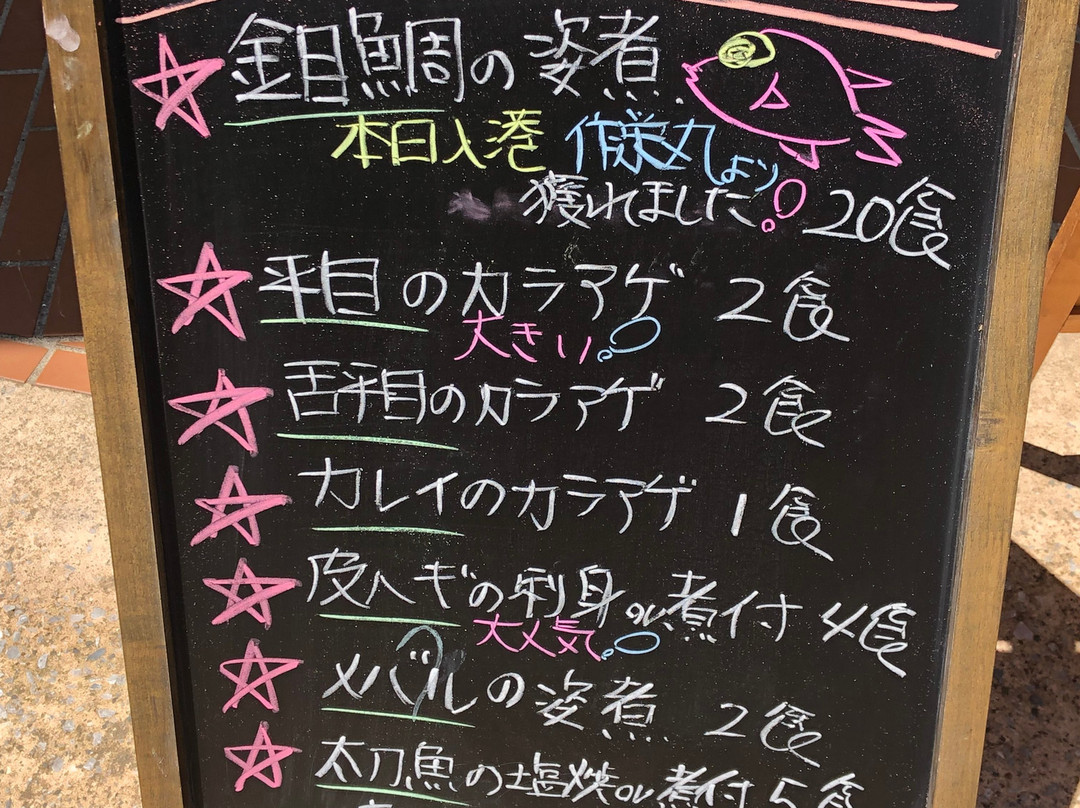 金目鯛の姿煮
本日入港 作栄丸より
獲れました! 20食
平目のカラアゲ 2食
大きい!
舌平目のカラアゲ 2食
カレイのカラアゲ 1食
皮ハギの刺身or煮付 4食
大人気!
メバルの姿煮 2食
太刀魚の塩焼or煮付 5食